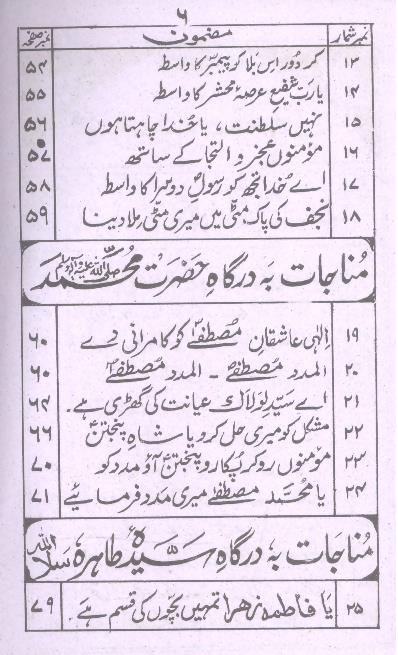 ۶
نمبر شمار مضمون نمبر صفحہ
۱۳ کر دور اس بلا کو پیمبرؐ کا واسطہ ۵۴
۱۴ یا رب شفیعِ عرصۂ محشر کا واسطہ ۵۵
۱۵ نہیں سلطنت، یا خدا چاہتا ہوں ۵۶
۱۶ مؤمنوں عجز و التجا کے ساتھ ۵۷
۱۷ اے خدا تجھ کو رسولِ دوسرا کا واسطہ ۵۸
۱۸ نجف کی پاک مٹی میں میری مٹی ملا دینا ۵۹
مناجات بہ درگاہِ حضرت محمد صلی اللہ علیہ وآلہ وسلم
۱۹ الٰہی عاشقانِ مصطفےٰؐ کو کامرانی دے ۶۰
۲۰ المدد مصطفےٰؐ ۔ المدد مصطفےٰؐ ۶۰
۲۱ اے سیدِ لولاک عیانت کی گھڑی ہے۔ ۶۴
۲۲ مشکل کو میری حل کرو یا شاہِ پنجتنؑ ۶۶
۲۳ مؤمنوں رو کر پکارو پنجتنؑ آؤ مدد کو ۷۰
۲۴ یا محمدؐ مصطفےٰؐ میری مدد فرمائیے ۷۱
مناجات بہ درگاہِ سیدۂ طاہرہ سلام اللہ
۲۵ یا فاطمہ زہرا تمہیں بچوں کی قسم ہے۔ ۷۹